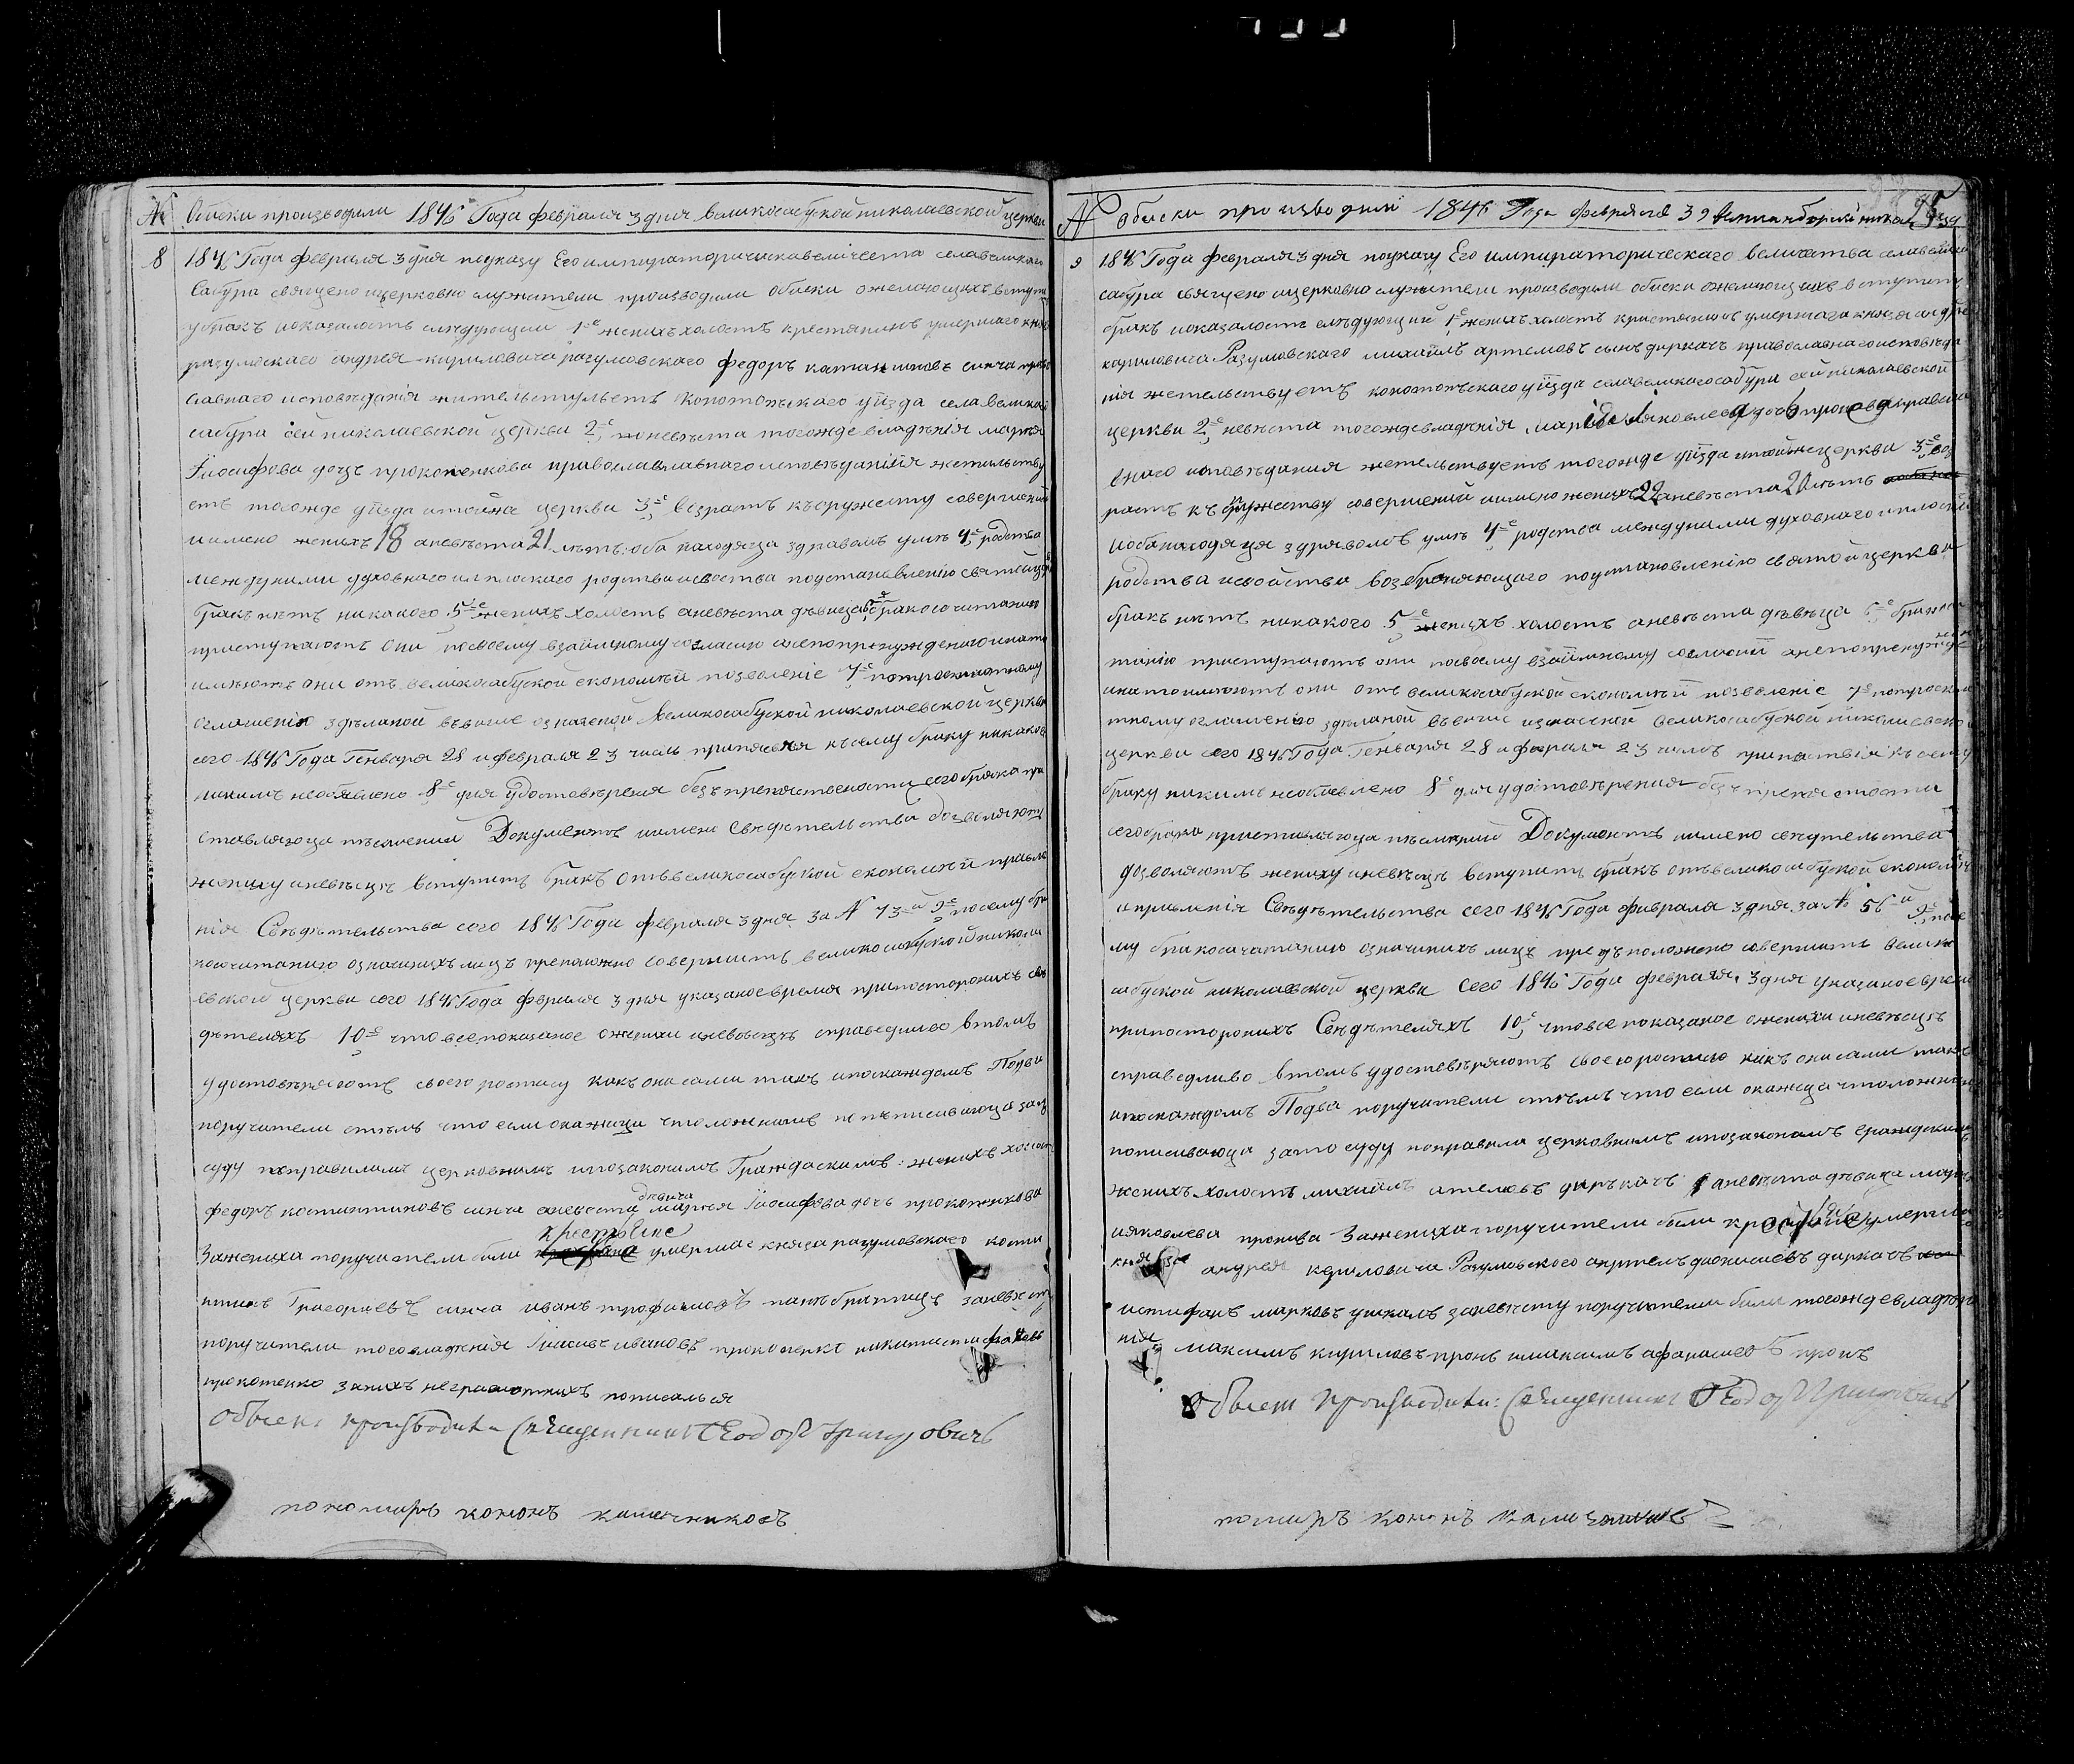 № Обиски производили 1846 Года февраля 3 дня великосабуской николаевской церкви
8 1846 Года февраля 3 дня поуказу Его императоричискавеличества села великаго
Сабура свяцено ицерковно служители производили обиски ожелающихъ вступи
убракъ ипоказалость следующии 1е женихъ холостъ крестянинъ умершаго княз
разумоскаго андрея кириловича разумовскаго федоръ синча прав
славнаго исповеданія жительстуветъ Конотопскаго уізда села великаго
сабура сей николаевской церкви 2е невеста тогожде владенія марѳя
Іиосифова дочъ прокопенкова православлавнаго исповеданіия жетильству
етъ тогожде уізда итойже церкви 3е возрастъ къ супружеству совершений
иимено женихъ 18 аневеста 21 летъ: оба находяца здравомъ уме 4е родства
междуними духовнаго ил плоскаго родства исвоства поустановленію святей церк
бракъ нетъ никакого 5е женихъ холостъ аневеста девица 6е бракосочитанию
приступаютъ они посвоему взаимному согласию анепопренуждению инато
имеютъ они отъ великосабуской економіи позволеніе 7е потроекратному
оглашенію зделаной въвише означеной великосабуской николаевской церкви
сего 1846 Года Генваря 28 и февраля 2 3 числъ припяствия късему браку никаков
никимъ необявлено 8е для удостоверения безъ препятственности сего брака при
ставляюца писмений Документъ имено Свидетельства дозволяютъ
жениху иневесце вступить бракъ отъ великосабуской економіи правле
нія Свидетельства сего 1846 Года февраля 3 дня за N 73 9е посему бра
косочитанию означинихъ лицъ преположно совершить великосабуской никола
евской церкви сего 1846 Года февраля 3 дня указаное время припосторонихъ сви
детеляхъ 10е что все показаное ожениху иневесце справедливо втомъ
удостоверяютъ своего роспису какъ они сами такъ ипокаждомъ Подва
поручители стемъ что если окажица чтоложниме пописиваюца зато
суду поправиламъ церковнимъ ипозаконамъ Граждаскимъ: женихъ холостъ
федоръ костантиновъ синча аневеста девица марѳя Іиосифова дочъ прокопенкова
Зажениха поручители били крестяне умершаго князя разумовскаго конста
нтинъ Григориевъ синча иванъ трофимовъ заневесту
поручители тоговладенія Іиосивъ ивановъ прокопенко никита стефановъ
прокопенко заних неграмотнихъ пописалься
Обыскъ производилъ Священникъ Ѳеодоръ Григоровичъ
пономаръ кононъ

№ обиски производили 1846 Года февраля 3 д
9 1846 Года февраля 3 дня поуказу Его императорическаго величества села велика
сабура свяцено ицерковно служители производили обиски ожелающихъ вступить
бракъ ипоказалость следующий 1е женихъ холостъ кристянинъ умершаго князя андрея
кириловича Разумовскаго михаилъ артемовъ синъ диркачъ православнаго исповеда
нія жетельствуетъ конотопскаго уізда села великого сабура сей николаевской
церкви 2е невеста тогожде владенія марія яковлева дочь пронева православ
енаго исповедания жетельствуетъ тогожде уізда итойже церкви 3е воз
растъ къ супружеству совершений иимено женихъ 22 аневеста 20 летъ
иоба находяця здравомъ уме 4е родства междуними духовнаго иплоскаго
родства исвойства возброняющаго поустановленію святой церкви
бракъ нетъ никакого 5е женихъ холостъ аневеста девица 6е бракосоч
танію приступаютъ они посвоему взаимному согласий анепопренужде
инатоимеютъ они отъ великосабуской економіи позволеніе 7е потроекра
тному оглашенію зделаной въвише изначеной великосабуской николаевской
церкви сего 1846 Года Генваря 28 и фвраля 2 3 числъ припаствія къ сему
браку никимъ необявлено 8е для удостоверения безъ препятствости
сегобрака приставляюца писмений Документъ имено свидетельства
дозволяютъ жениху иневесце вступить бракъ отъ великосабуской економіи
иправленія Свидетельства сего 1846 Года февраля 3 дня за № 56 9е посе
му бракосочатанию означинихъ лицъ предположено совершить велико
сабуской николаевской церкви сего 1846 Года февраля 3 дня указаное время
припосторонихъ Свидетеляхъ 10е чтовсе показаное ожениху иневесце
справедливо втомъ удостоверяютъ своею росписю какъ они сами такъ
ипокаждомъ Подва поручители стемъ что если окажеца чтоложно
пописиваюца зато суду поправила церковнимъ ипозаконамъ гражданским
женихъ холостъ михаилъ артемовъ диркачъ аневеста девица марія
ияковлева пронива Зажениха поручители били крестяне умершаго
князя андрея кириловича Разумовского артемъ дионисиевъ диркачъ
истифанъ марковъ заневесту поручители били тогожде владе
нія максимъ кириловъ пронь имаксимъ афанасиевъ пронь
Обыскъ производилъ: Священникъ Ѳеодоръ Григоровичъ
кононъ